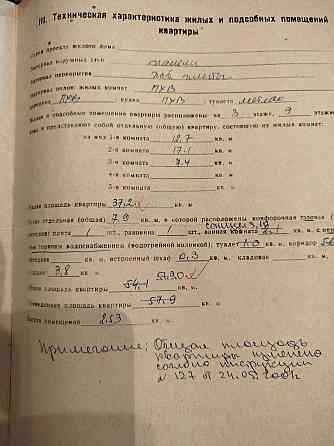 III. Техническая характеристика жилых и подсобных помещений
квартиры
Серия проекта жилого дома
Материал наружных стен панели
Материал перекрытия жб плиты
Материал полов: жилых комнат ПХВ
ПХВ кухни ПХВ, туалета метлах
Жилые и подсобные помещения квартиры расположены на 3 этаже, 9 этажн.
и представляют собой отдельную (общую) квартиру, состоящую из жилых комнат:
на них 1-я комната 12.7 кв. м
2-я комната 17.1 кв. м
3-я комната 7.4 кв. м
4-я комната кв. м
5-я комната кв. м
Жилая площадь квартиры 37.2 кв. м
Кухня отдельная (общая) 7.9 кв. м, в которой расположены конфорочная газовая
плита 1 шт., раковина 1 шт., ванная комната 2.1 кв. м с
горячим водоснабжением (водогрейной колонкой); туалет 1.0 кв. м, коридор
кв. м, встроенный шкаф 0.3 кв. м, кладовая кв. м,
3.8 кв. м
57.90
Общая площадь квартиры 54.1 кв. м
Приведенная площадь квартиры 57.9 кв. м
Высота помещения 2.53
Примечание: Общая площадь
квартиры изменена
согласно инструкции
N 127 от 24.05.2001г.